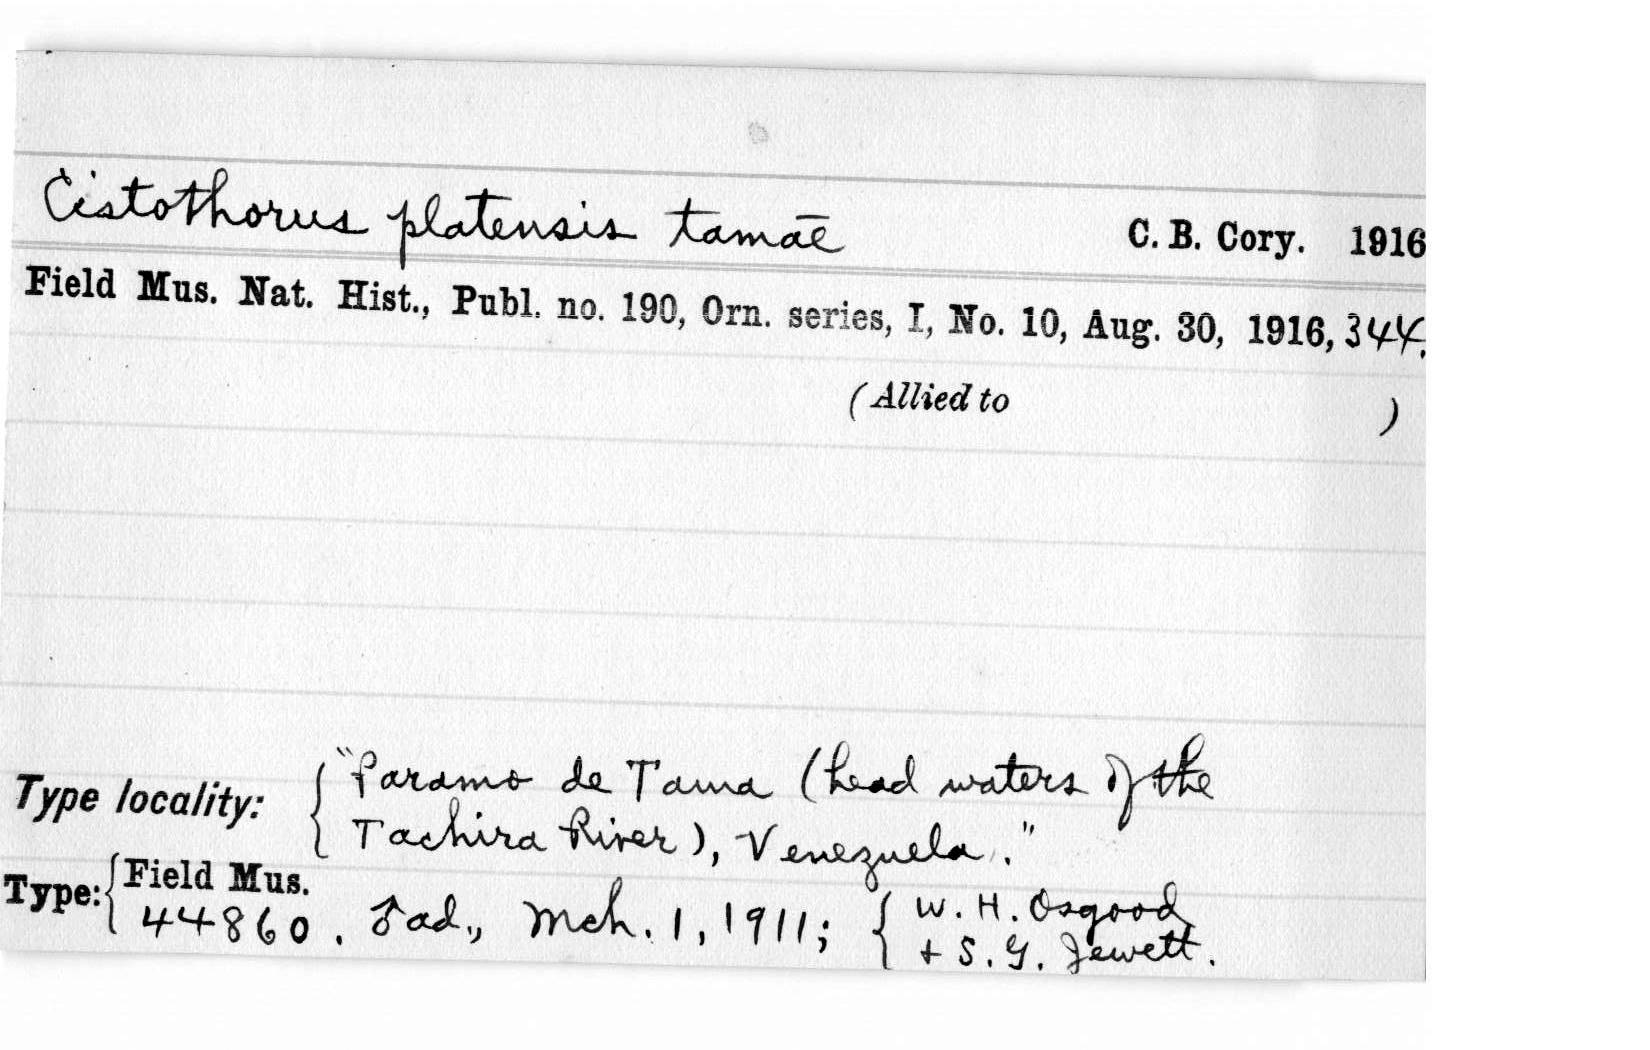 Cistothorus platensis tamae C. B. Cory. 1916
Field Mus. Nat. Hist., Publ. no. 190, Orn. series, I, No. 10, Aug. 30, 1916, 344.
(Allied to )
Type locality: { "Paramo de Tama (head waters of the
Tachira River), Venezuela."
Type: { Field Mus.
44860. ♂ ad., Mch. 1, 1911; { W. H. Osgood
+ S. G. Jewett.